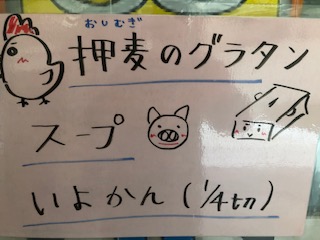 おしむぎ
押麦のグラタン
スープ
いよかん(1/4切)